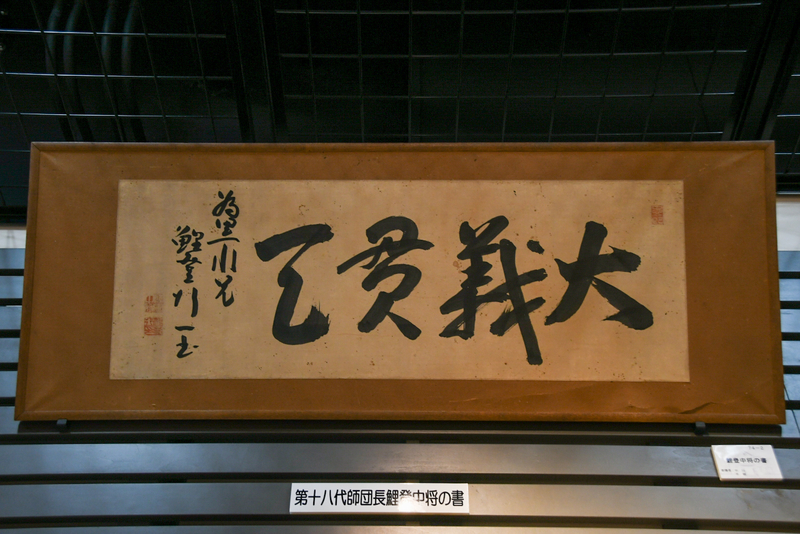 大義貫天
為黒川兄
鯉登行一書
鯉登中将の書
第十八代師団長鯉登中将の書